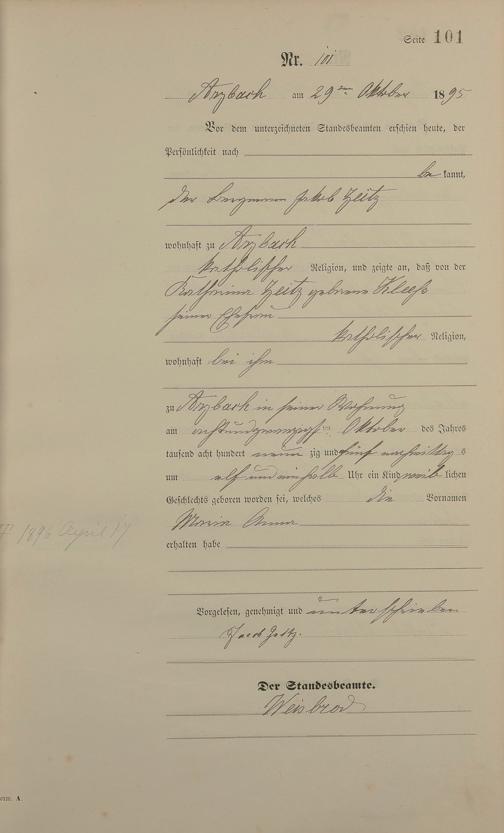 Seite 101
Nr. 101
Arzbach am 29ten Oktober 1895
Vor dem unterzeichneten Standesbeamten erschien heute, der
Persönlichkeit nach
be kannt,
der Bergmann Jakob Zeitz
wohnhaft zu Arzbach
katholischer Religion, und zeigte an, daß von der
Katharina Zeitz geborene Kleefs
seiner Ehefrau
katholischer Religion,
wohnhaft bei ihm
zu Arzbach in seiner Wohnung
am achtundzwanzigsten Oktober des Jahres
tausend acht hundert neun zig und fünf vormittags
um elf und ein halb Uhr ein Kind weib lichen
Geschlechts geboren worden sei, welches die Vornamen
Maria Anna
erhalten habe
† 1896 April 17
Vorgelesen, genehmigt und unterschrieben
Jacob Zeitz.
Der Standesbeamte.
Weisbrod
A.